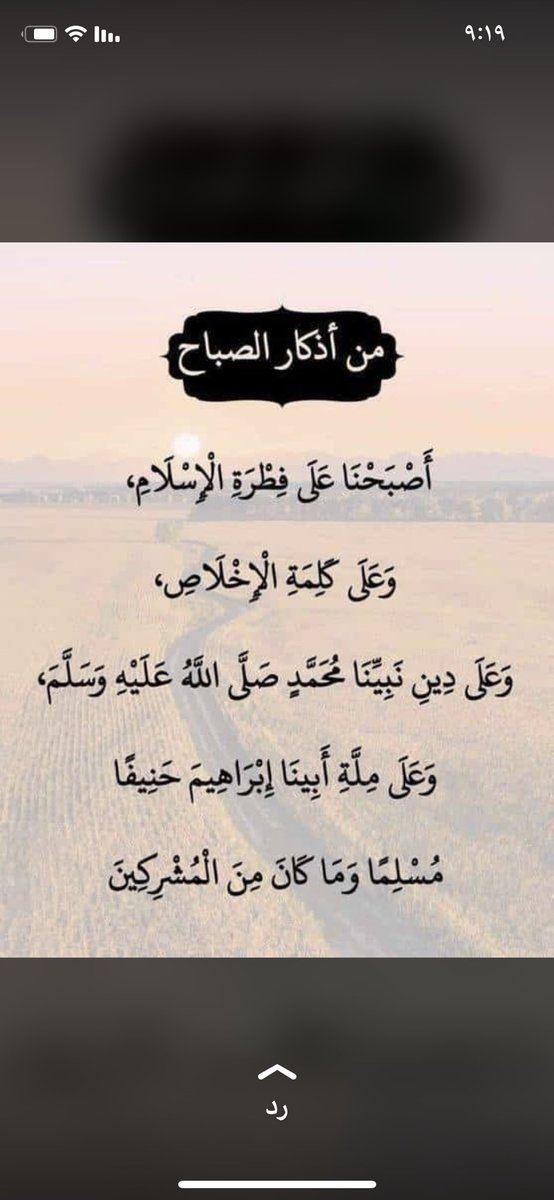 ٩:١٩
من أذكار الصباح
أَصْبَحْنَا عَلَى فِطْرَةِ الْإِسْلَامِ،
وَعَلَى كَلِمَةِ الْإِخْلَاصِ،
وَعَلَى دِينِ نَبِيِّنَا مُحَمَّدٍ صَلَّى اللَّهُ عَلَيْهِ وَسَلَّمَ،
وَعَلَى مِلَّةِ أَبِينَا إِبْرَاهِيمَ حَنِيفًا
مُسْلِمًا وَمَا كَانَ مِنَ الْمُشْرِكِينَ
رد